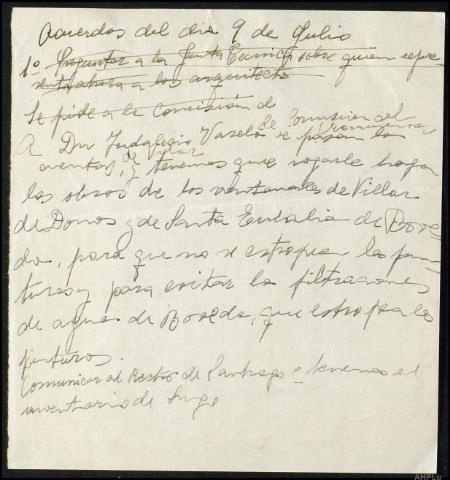 Acuerdos del dia 9 de Julio
1º Preguntar a la Junta Tecnica sobre quien repre-
senta ahora a los arquitectos
Se pide a la comisión de
A Dn Varela se pasan las
cuentas, y tenemos que rogarle hagan
las obras de los ventanales de Villar
de Donas y de Santa Eulalia de Bove-
da, para que no se estropeen las pin-
turas y para evitar las filtraciones
de aguas de Boveda, que estropea las
pinturas.
Comunicar al Rector de Santiago q tenemos el
inventario de Lugo
AHPLu